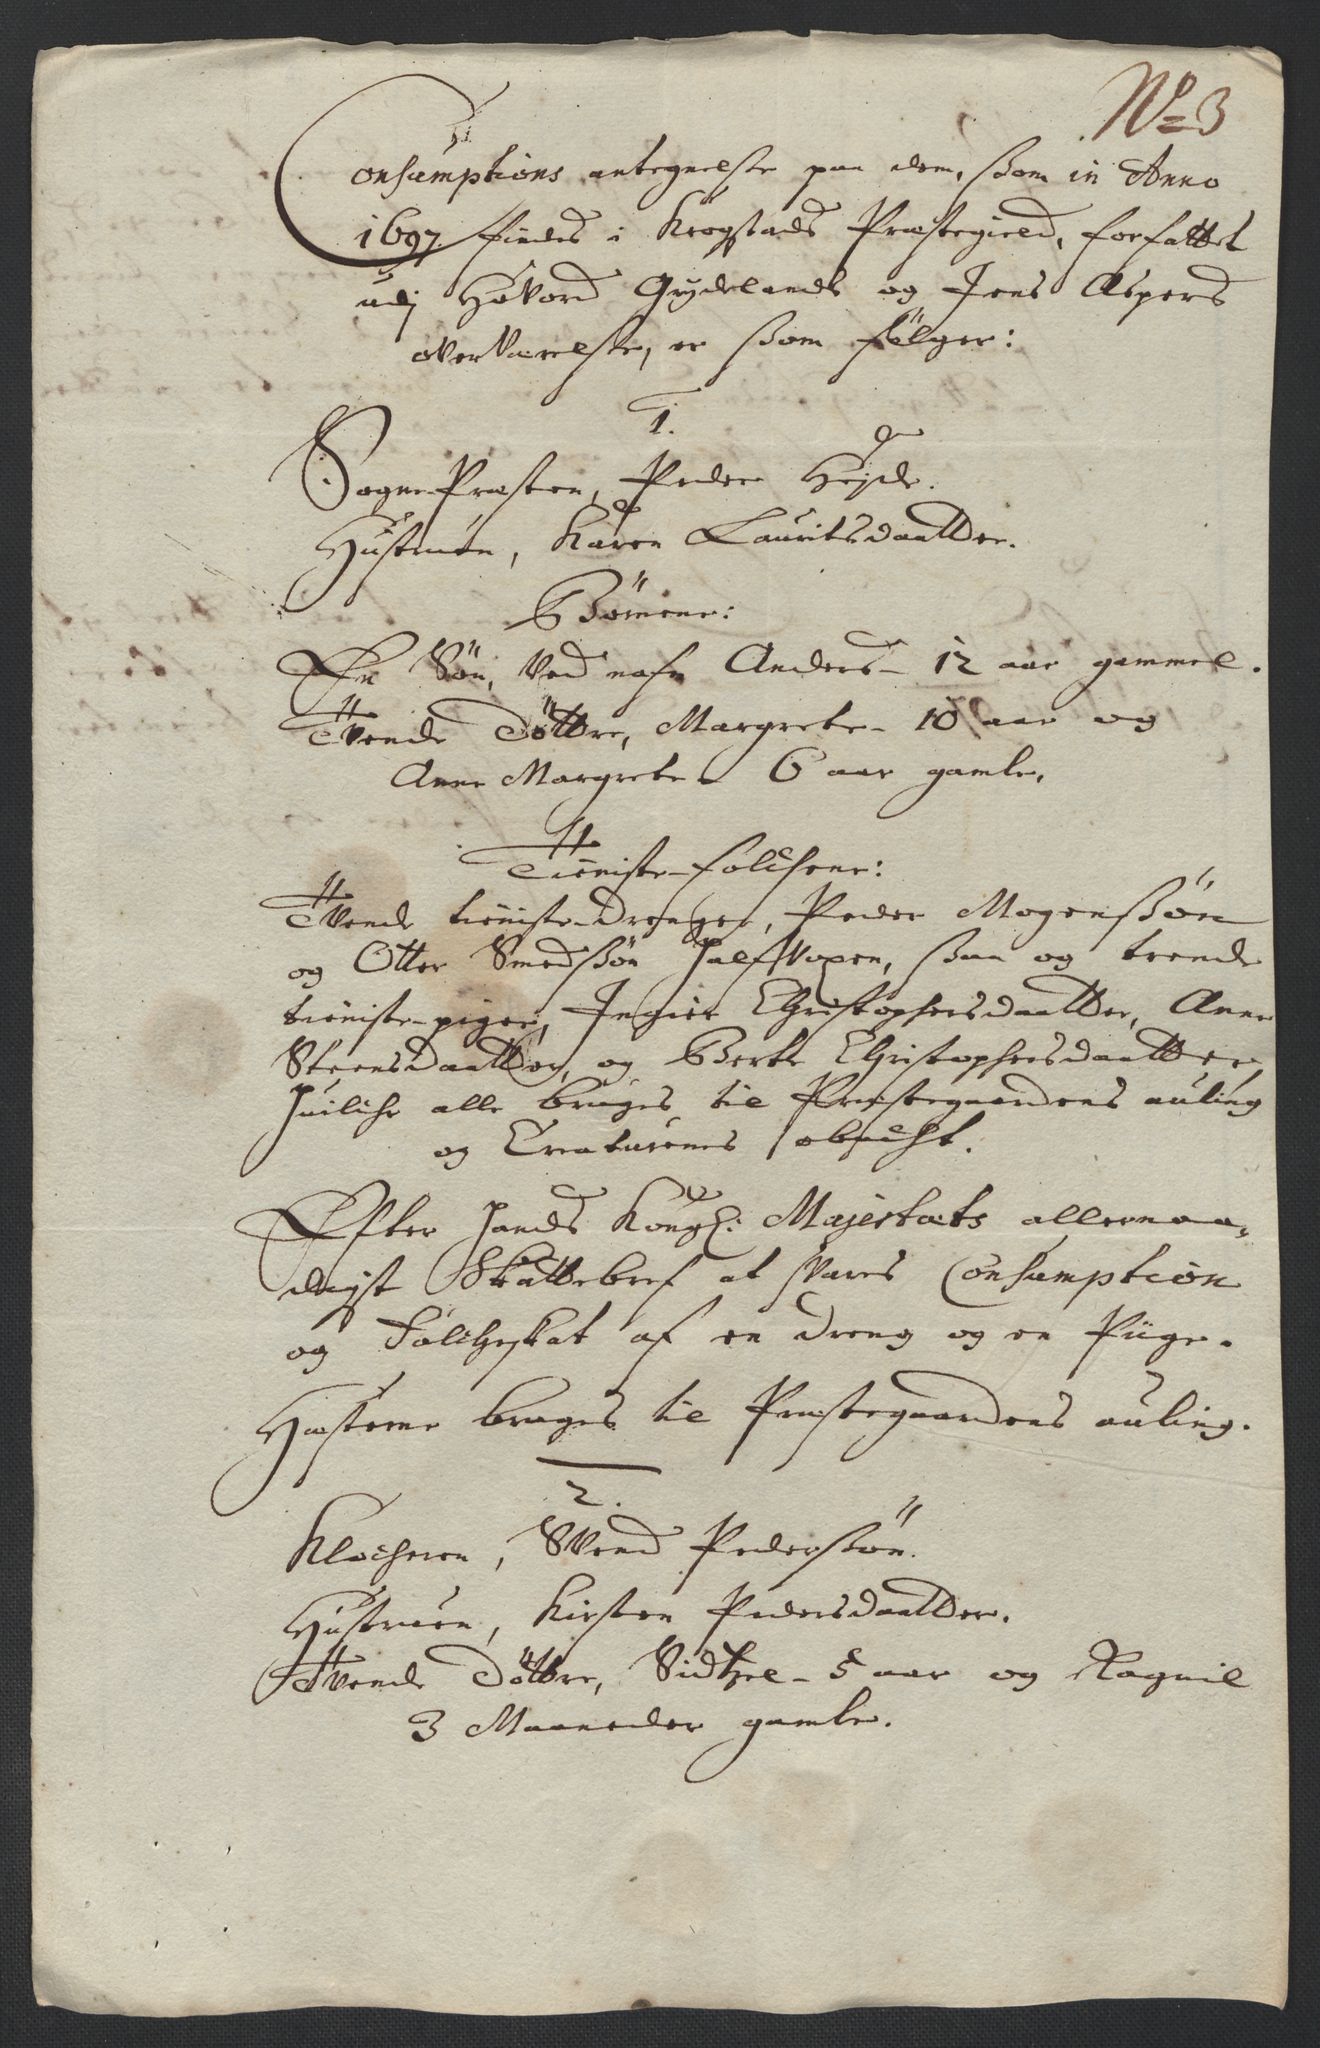 No 3
Consumptions antegnelse paa dem, ßom in Anno
1697 findes i Krogstads Præstegield, forfattet
udj Hovord Grydelands og Jens Aspers
overværelse, er ßom fölger:
1.
SognePræsten, Peder Hejde.
Hustruen, Karen Lauritsdaatter.
Börnene:
En Sön, ved nafn Anders - 12 aar gammel.
Tvende Döttre, Margrete - 10 aar og
Anne Margrete - 6 aar gamle.
Tieniste-folchene:
Tvende tieniste-drenger, Peder Mogenßön
og Otter Smedßön halfvoxen, ßaa og trende
tieniste-piger, Ingier Christophersdaatter, Anne
Steensdaatter, og Berte Christophersdaatter,
huilche alle bruges til Præstegaardens auling
og Creaturenes obacht.
Efter hands Kongl: Majestæts allernaa-
digst Skattebref at svares Consumption
og Folcheskat af en dreng og en Piige.
Hæstene bruges til Præstegaardens auling.
2.
Klocheren, Svend Pederßön.
Hustruen, Kirsten Pedersdaatter.
Tvende Döttre, Sidtzel - 5 aar og Ragnil
3 Maaneder gamle.